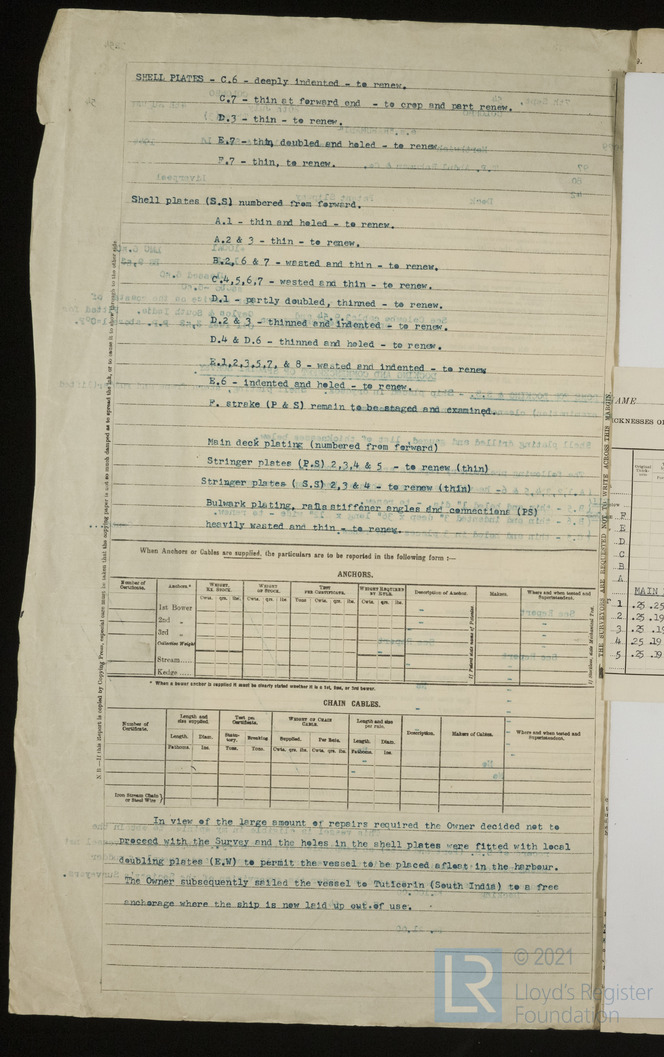 SHELL PLATES - C.6 - deeply indented - to renew.
C.7 - thin at forward end - to crop and part renew.
D.3 - thin - to renew.
E.7 - thin, doubled and holed - to renew
F.7 - thin, to renew.
Shell plates (S.S) numbered from forward.
A.1 - thin and holed - to renew.
A.2 & 3 - thin - to renew.
B.2, 6 & 7 - wasted and thin - to renew.
C.4,5,6,7 - wasted and thin - to renew.
D.1 - partly doubled, thinned - to renew.
D.2 & 3 - thinned and indented - to renew.
D.4 & D.6 - thinned and holed - to renew.
E.1,2,3,5,7, & 8 - wasted and indented - to renew
E.6 - indented and holed - to renew.
F. strake (P & S) remain to be staged and examined.
Main deck plating (numbered from forward)
Stringer plates (P.S) 2,3,4 & 5 - to renew (thin)
Stringer plates (S.S) 2,3 & 4 - to renew (thin)
Bulwark plating, rails stiffener angles and connections (PS)
heavily wasted and thin - to renew.
When Anchors or Cables are supplied, the particulars are to be reported in the following form :—
ANCHORS.
Number of Certificate. Anchors.* WEIGHT, EX. STOCK. WEIGHT OF STOCK. TEST PER CERTIFICATE. WEIGHT REQUIRED BY RULE. Description of Anchor. Makers. Where and when tested and Superintendent.
Cwts. qrs. lbs. Cwts. qrs. lbs. Tons Cwts. qrs. lbs. Cwts. qrs. lbs.
1st Bower
2nd „
3rd „
Collective Weight
Stream.....
Kedge ....
* When a bower anchor is supplied it must be clearly stated whether it is a 1st, 2nd, or 3rd bower.
CHAIN CABLES.
Number of Certificate. Length and size supplied. Test per Certificate. WEIGHT OF CHAIN CABLE. Length and size per rule. Description. Makers of Cables. Where and when tested and Superintendent.
Length. Diam. Statutory. Breaking Supplied. Per Rule. Length. Diam.
Fathoms. Ins. Tons. Tons. Cwts. qrs. lbs. Cwts. qrs. lbs. Fathoms. Ins.
Iron Stream Chain or Steel Wire
In view of the large amount of repairs required the Owner decided not to
proceed with the Survey and the holes in the shell plates were fitted with local
doubling plates (E.W) to permit the vessel to be placed afloat in the harbour.
The Owner subsequently sailed the vessel to Tuticorin (South India) to a free
anchorage where the ship is now laid up out of use.
THE SURVEYORS ARE REQUESTED NOT TO WRITE ACROSS THIS MARGIN
AME
CKNESSES OF
F
E
D
C
B
A
MAIN
1 .25 .25
2 .25 .19
3 .25 .19
4 .25 .19
5 .25 .19
LR
© 2021
Lloyd's Register
Foundation